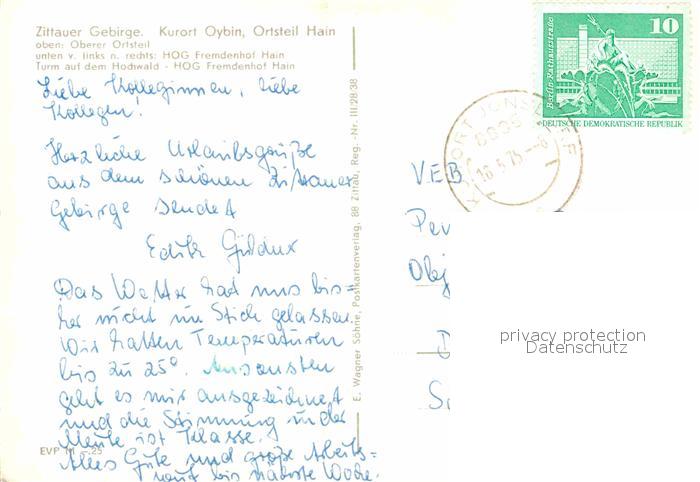 Zittauer Gebirge. Kurort Oybin, Ortsteil Hain
oben: Oberer Ortsteil
unten v. links n. rechts: HOG Fremdenhof Hain
Turm auf dem Hochwald - HOG Fremdenhof Hain
Liebe Kolleginnen, liebe
Kollegen!
Herzliche Urlaubsgrüße
aus dem schönen Zittauer
Gebirge sendet
Edith
Das Wetter hat uns bis=
her nicht im Stich gelassen.
Wir hatten Temperaturen
bis zu 25°. Ansonsten
geht es mir ausgezeichnet
und die Stimmung in der
Meute ist Klasse.
Alles Gute und große Arbeits=
wut bis nächste Woche.
EVP M -.25
E. Wagner Söhne, Postkartenverlag, 88 Zittau, Reg.-Nr. III/28/38
Berlin-Rathausstraße
10
DEUTSCHE DEMOKRATISCHE REPUBLIK
VEB
privacy protection
Datenschutz